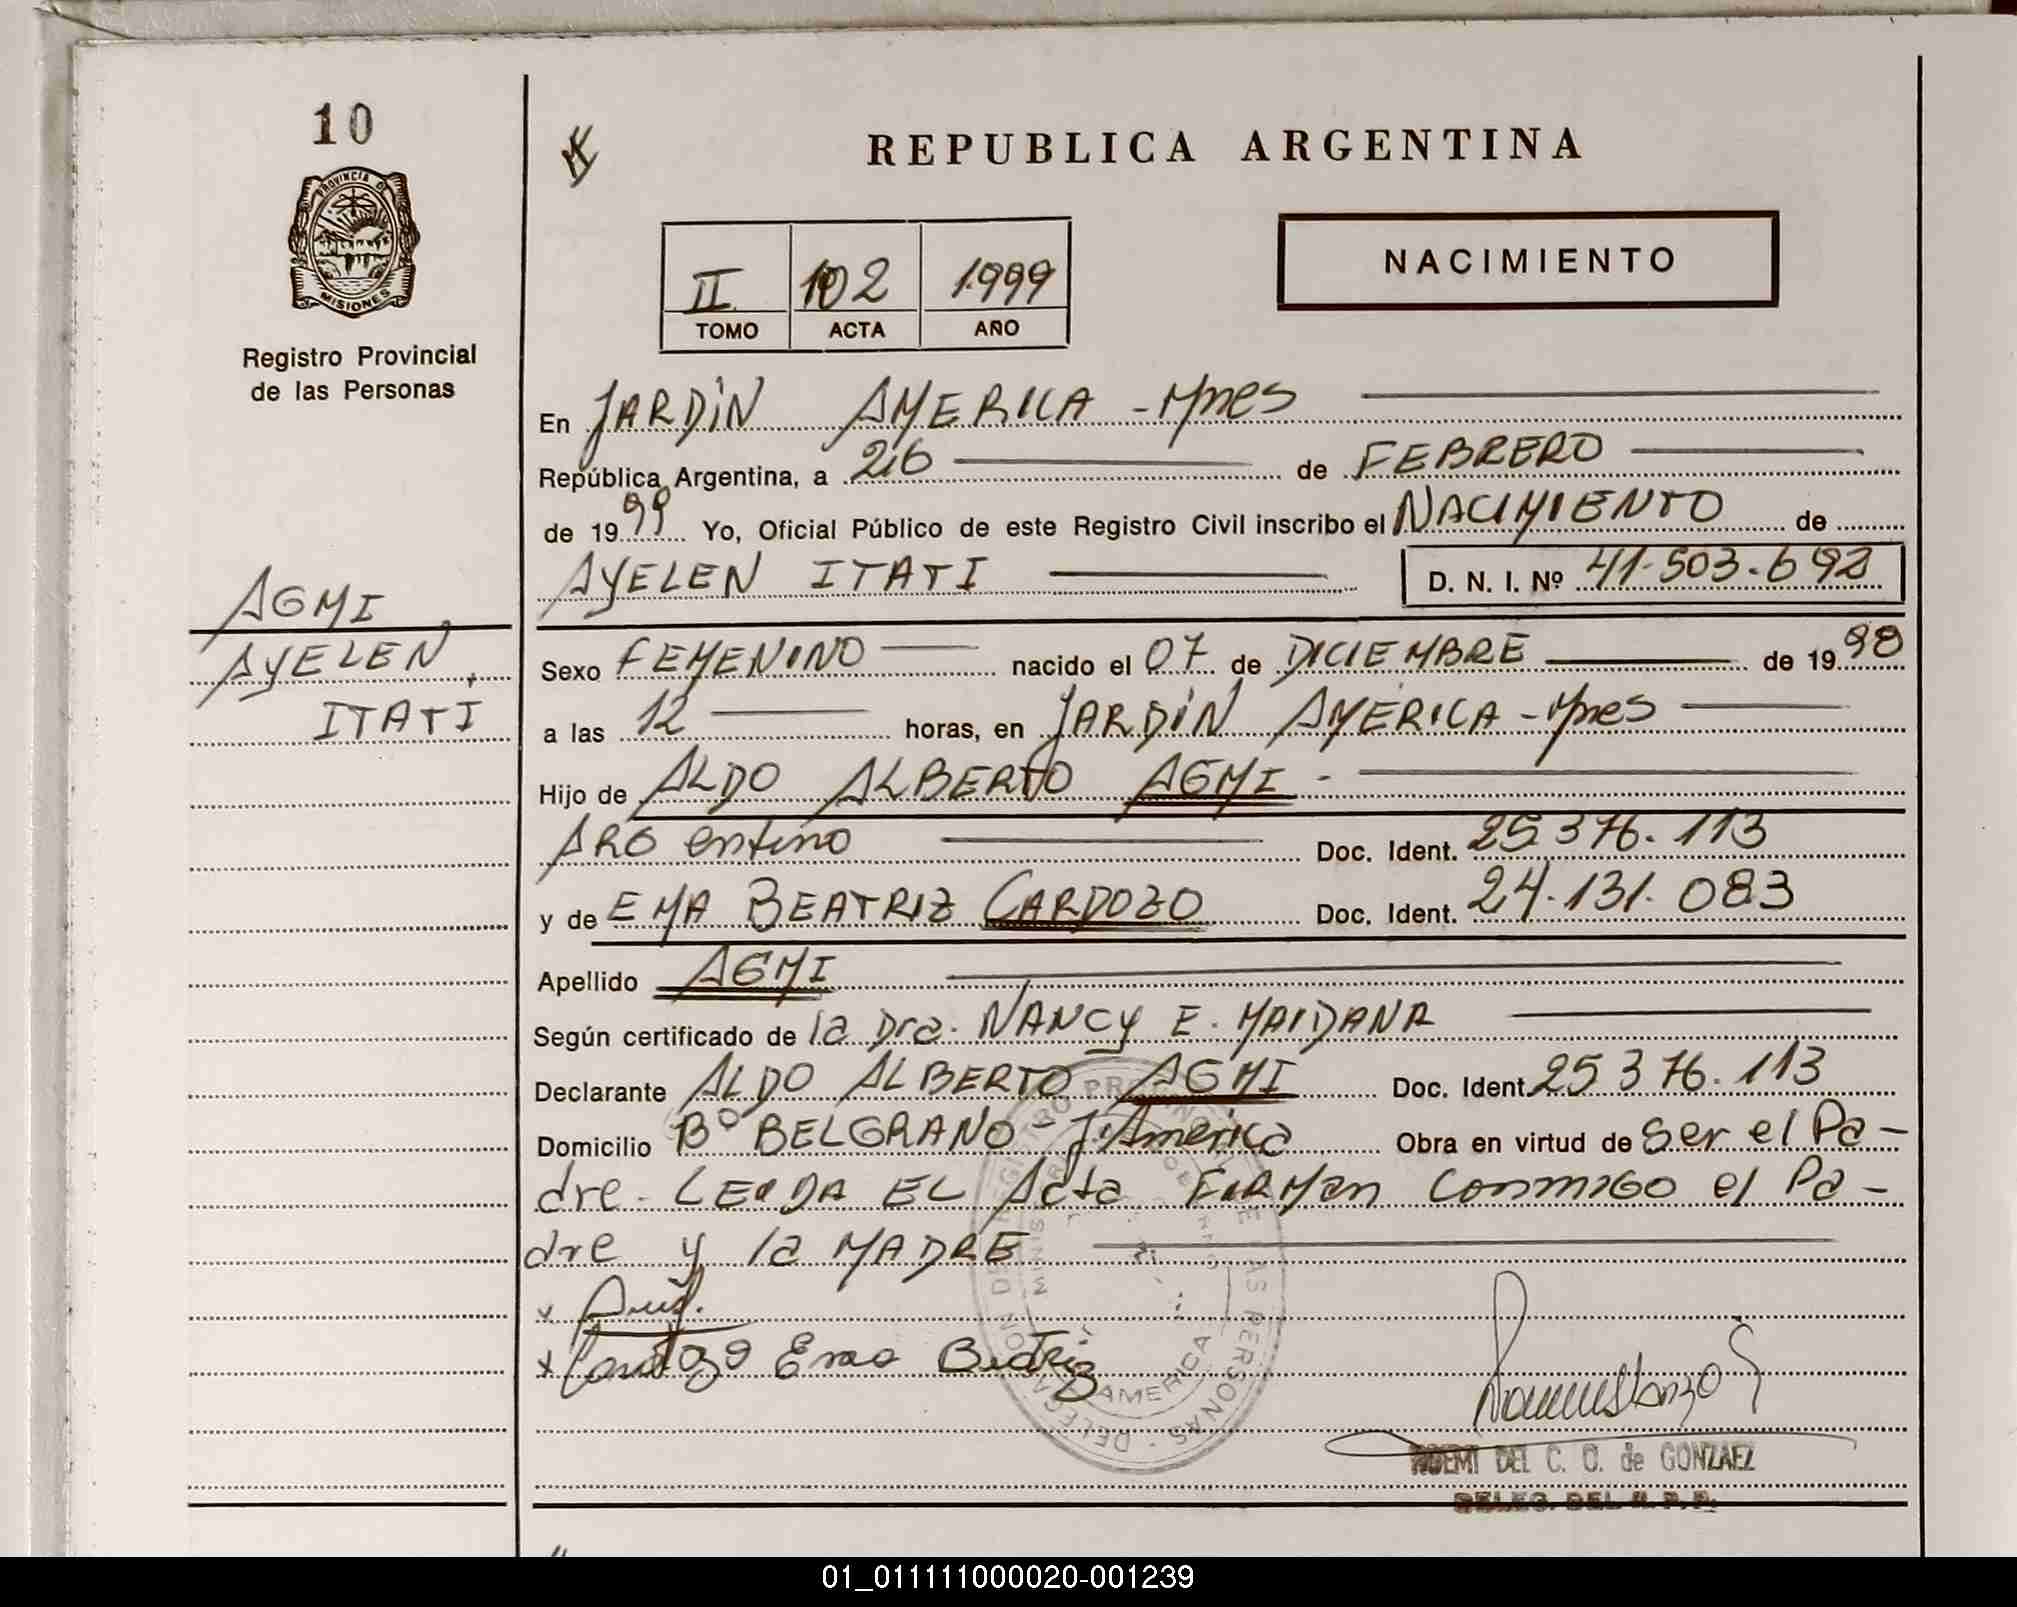 10
REPUBLICA ARGENTINA
PROVINCIA DE
MISIONES
II 102 1999
TOMO ACTA AÑO
NACIMIENTO
Registro Provincial
de las Personas
En JARDIN AMERICA - Mnes
República Argentina, a 26 de FEBRERO
de 1999 Yo, Oficial Público de este Registro Civil inscribo el NACIMIENTO de
AYELEN ITATI D. N. I. Nº 41.503.692
AGMI
AYELEN
ITATI
Sexo FEMENINO nacido el 07 de DICIEMBRE de 1998
a las 12 horas, en JARDIN AMERICA - Mnes
Hijo de ALDO ALBERTO AGMI -
ARGentino Doc. Ident. 25376.113
y de EMA BEATRIZ CARDOZO Doc. Ident. 24.131.083
Apellido AGMI
Según certificado de la Dra. NANCY E. MAIDANA
Declarante ALDO ALBERTO AGMI Doc. Ident. 25376.113
Domicilio Bº BELGRANO - J. America Obra en virtud de ser el Pa-
dre - LEIDA EL Acta FIRMan conmiGO el Pa-
dre y la MADRE
x
x Cardozo Ema Beatriz
AMERICA
NOEMI DEL C. O. de GONZAEZ
DELEG. DEL R. P. P.
01_011111000020-001239